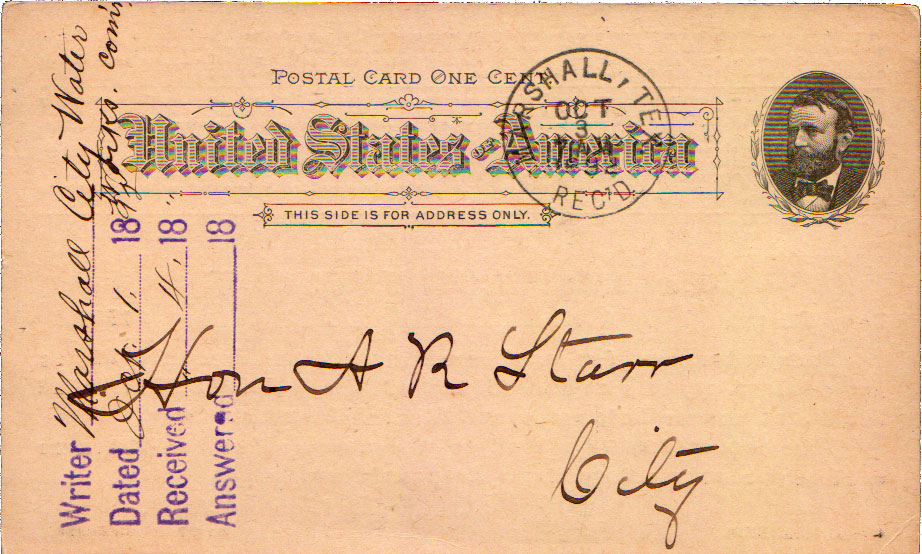 POSTAL CARD ONE CENT.
United States of America
THIS SIDE IS FOR ADDRESS ONLY.
MARSHALL, TEX.
OCT
3
92
REC'D.
Hon A R Starr
City
Writer Marshall City Water Works. Com'
Dated Oct. 1. 18
Received " 4. " 18
Answered 18